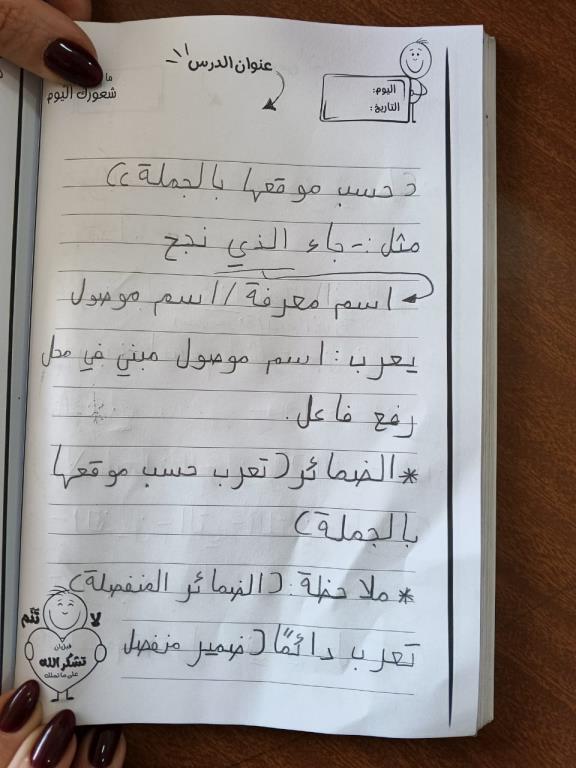 عنوان الدرس
اليوم:
التاريخ:
شعورك اليوم
(حسب موقعها بالجملة))
مثل :- جاء الذي نجح
اسم معرفة / اسم موصول
يعرب : اسم موصول مبني في محل
رفع فاعل.
* الضمائر (تعرب حسب موقعها
بالجملة)
* ملاحظة : (الضمائر المنفصلة)
تعرب دائمًا (ضمير منفصل
لا تنم
قبل ان
تشكر الله
على ما تملك